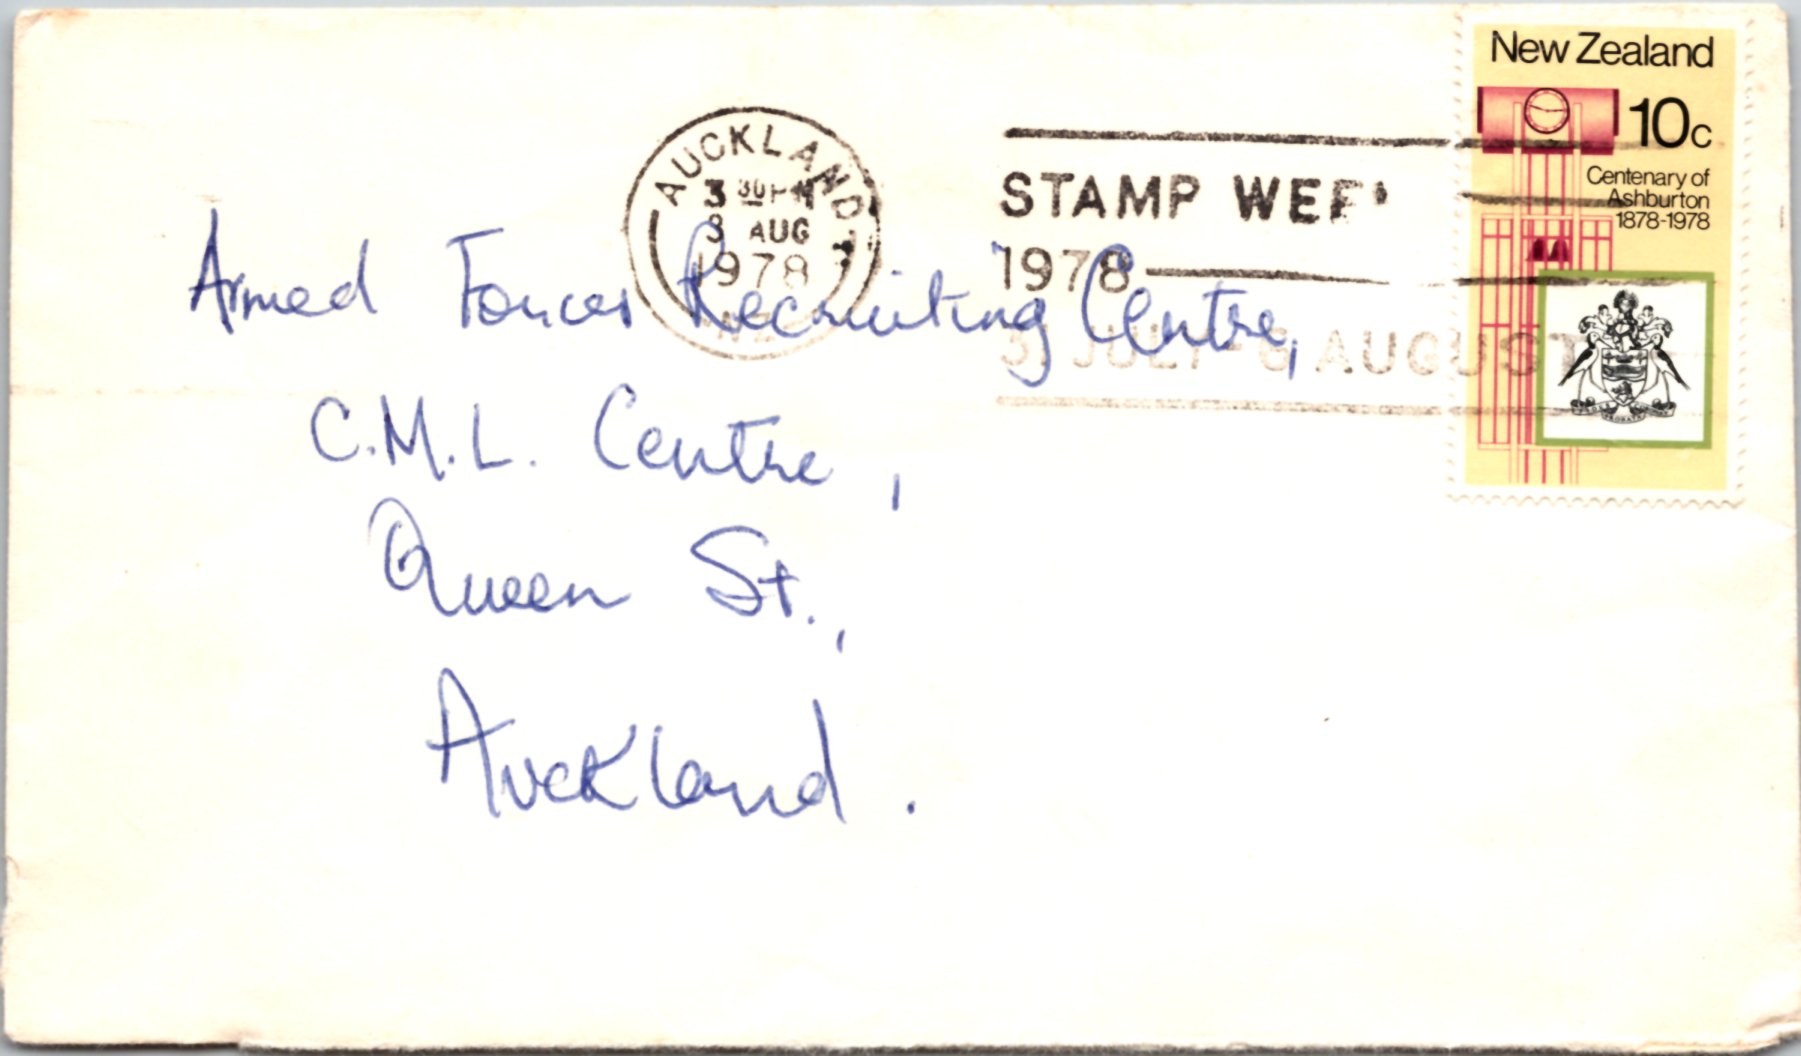 New Zealand
10c
Centenary of
Ashburton
1878-1978
AUCKLAND
3 30 PM
3 AUG
1978
STAMP WEEK
1978
JULY AUGUST
Armed Forces Recruiting Centre,
C.M.L. Centre,
Queen St.,
Auckland.